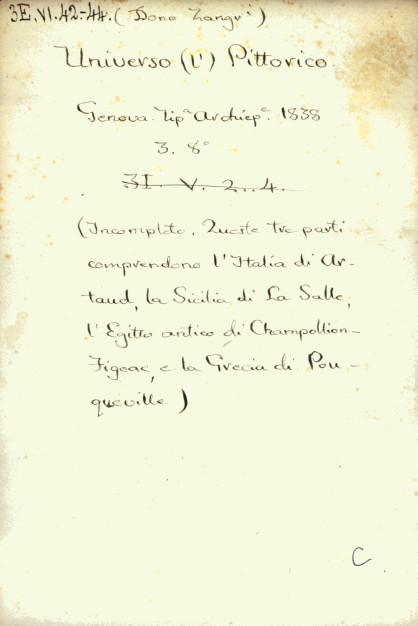 3E.VI.42-44. (Dono Zangri)
Universo (l') Pittorico
Genova. Tipª Arciepª. 1838
3. 8°
3I. V. 2..4.
(Incompleto. Queste tre parti
comprendono l'Italia di Ar-
taud, la Sicilia di La Salle,
l'Egitto antico di Champollion-
Figeac, e la Grecia di Pou-
queville)
C